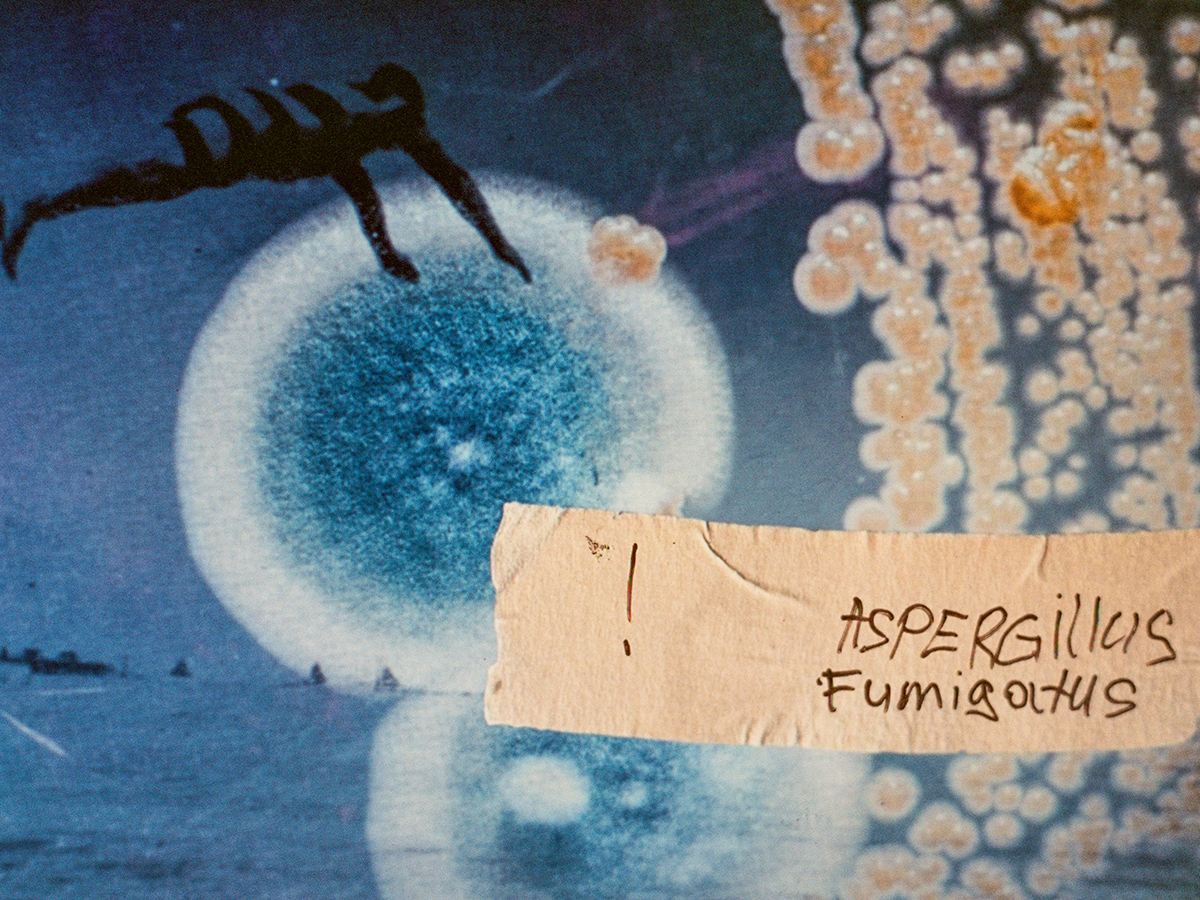 !
ASPERGillUS
Fumigatus